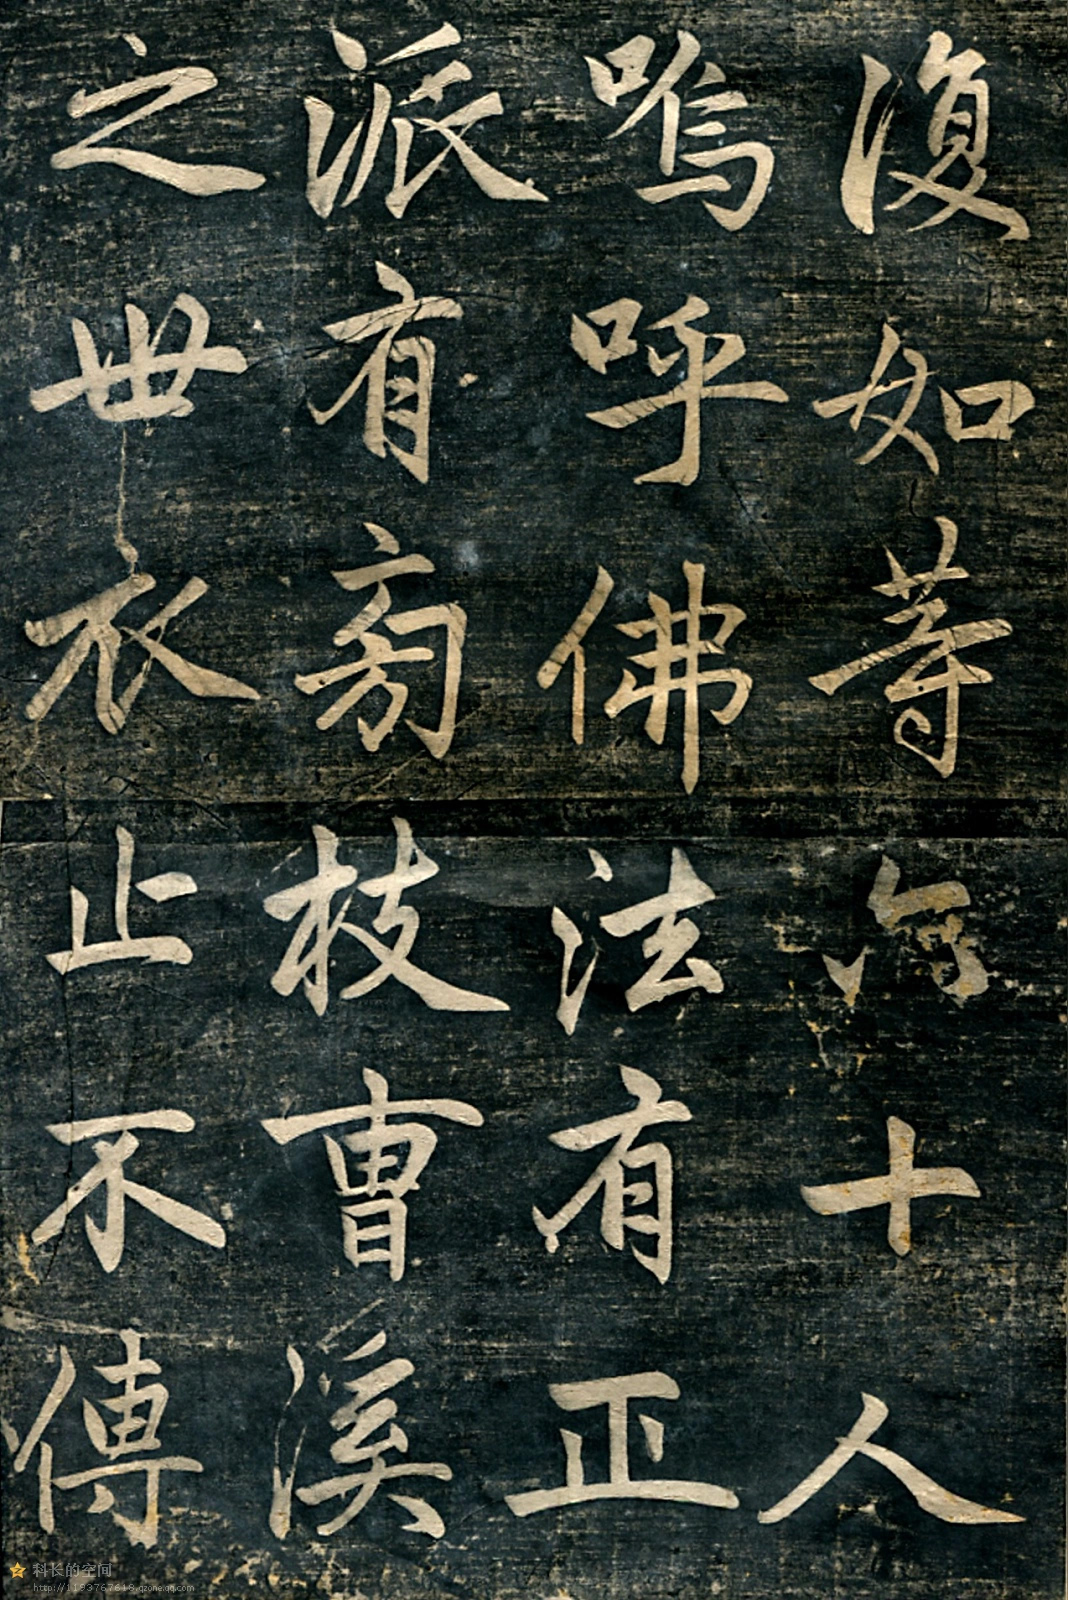 復如等六十人
嗚呼佛法有正
派有旁枝曹溪
之世衣止不傳
科长的空间
http://1193767618.qzone.qq.com